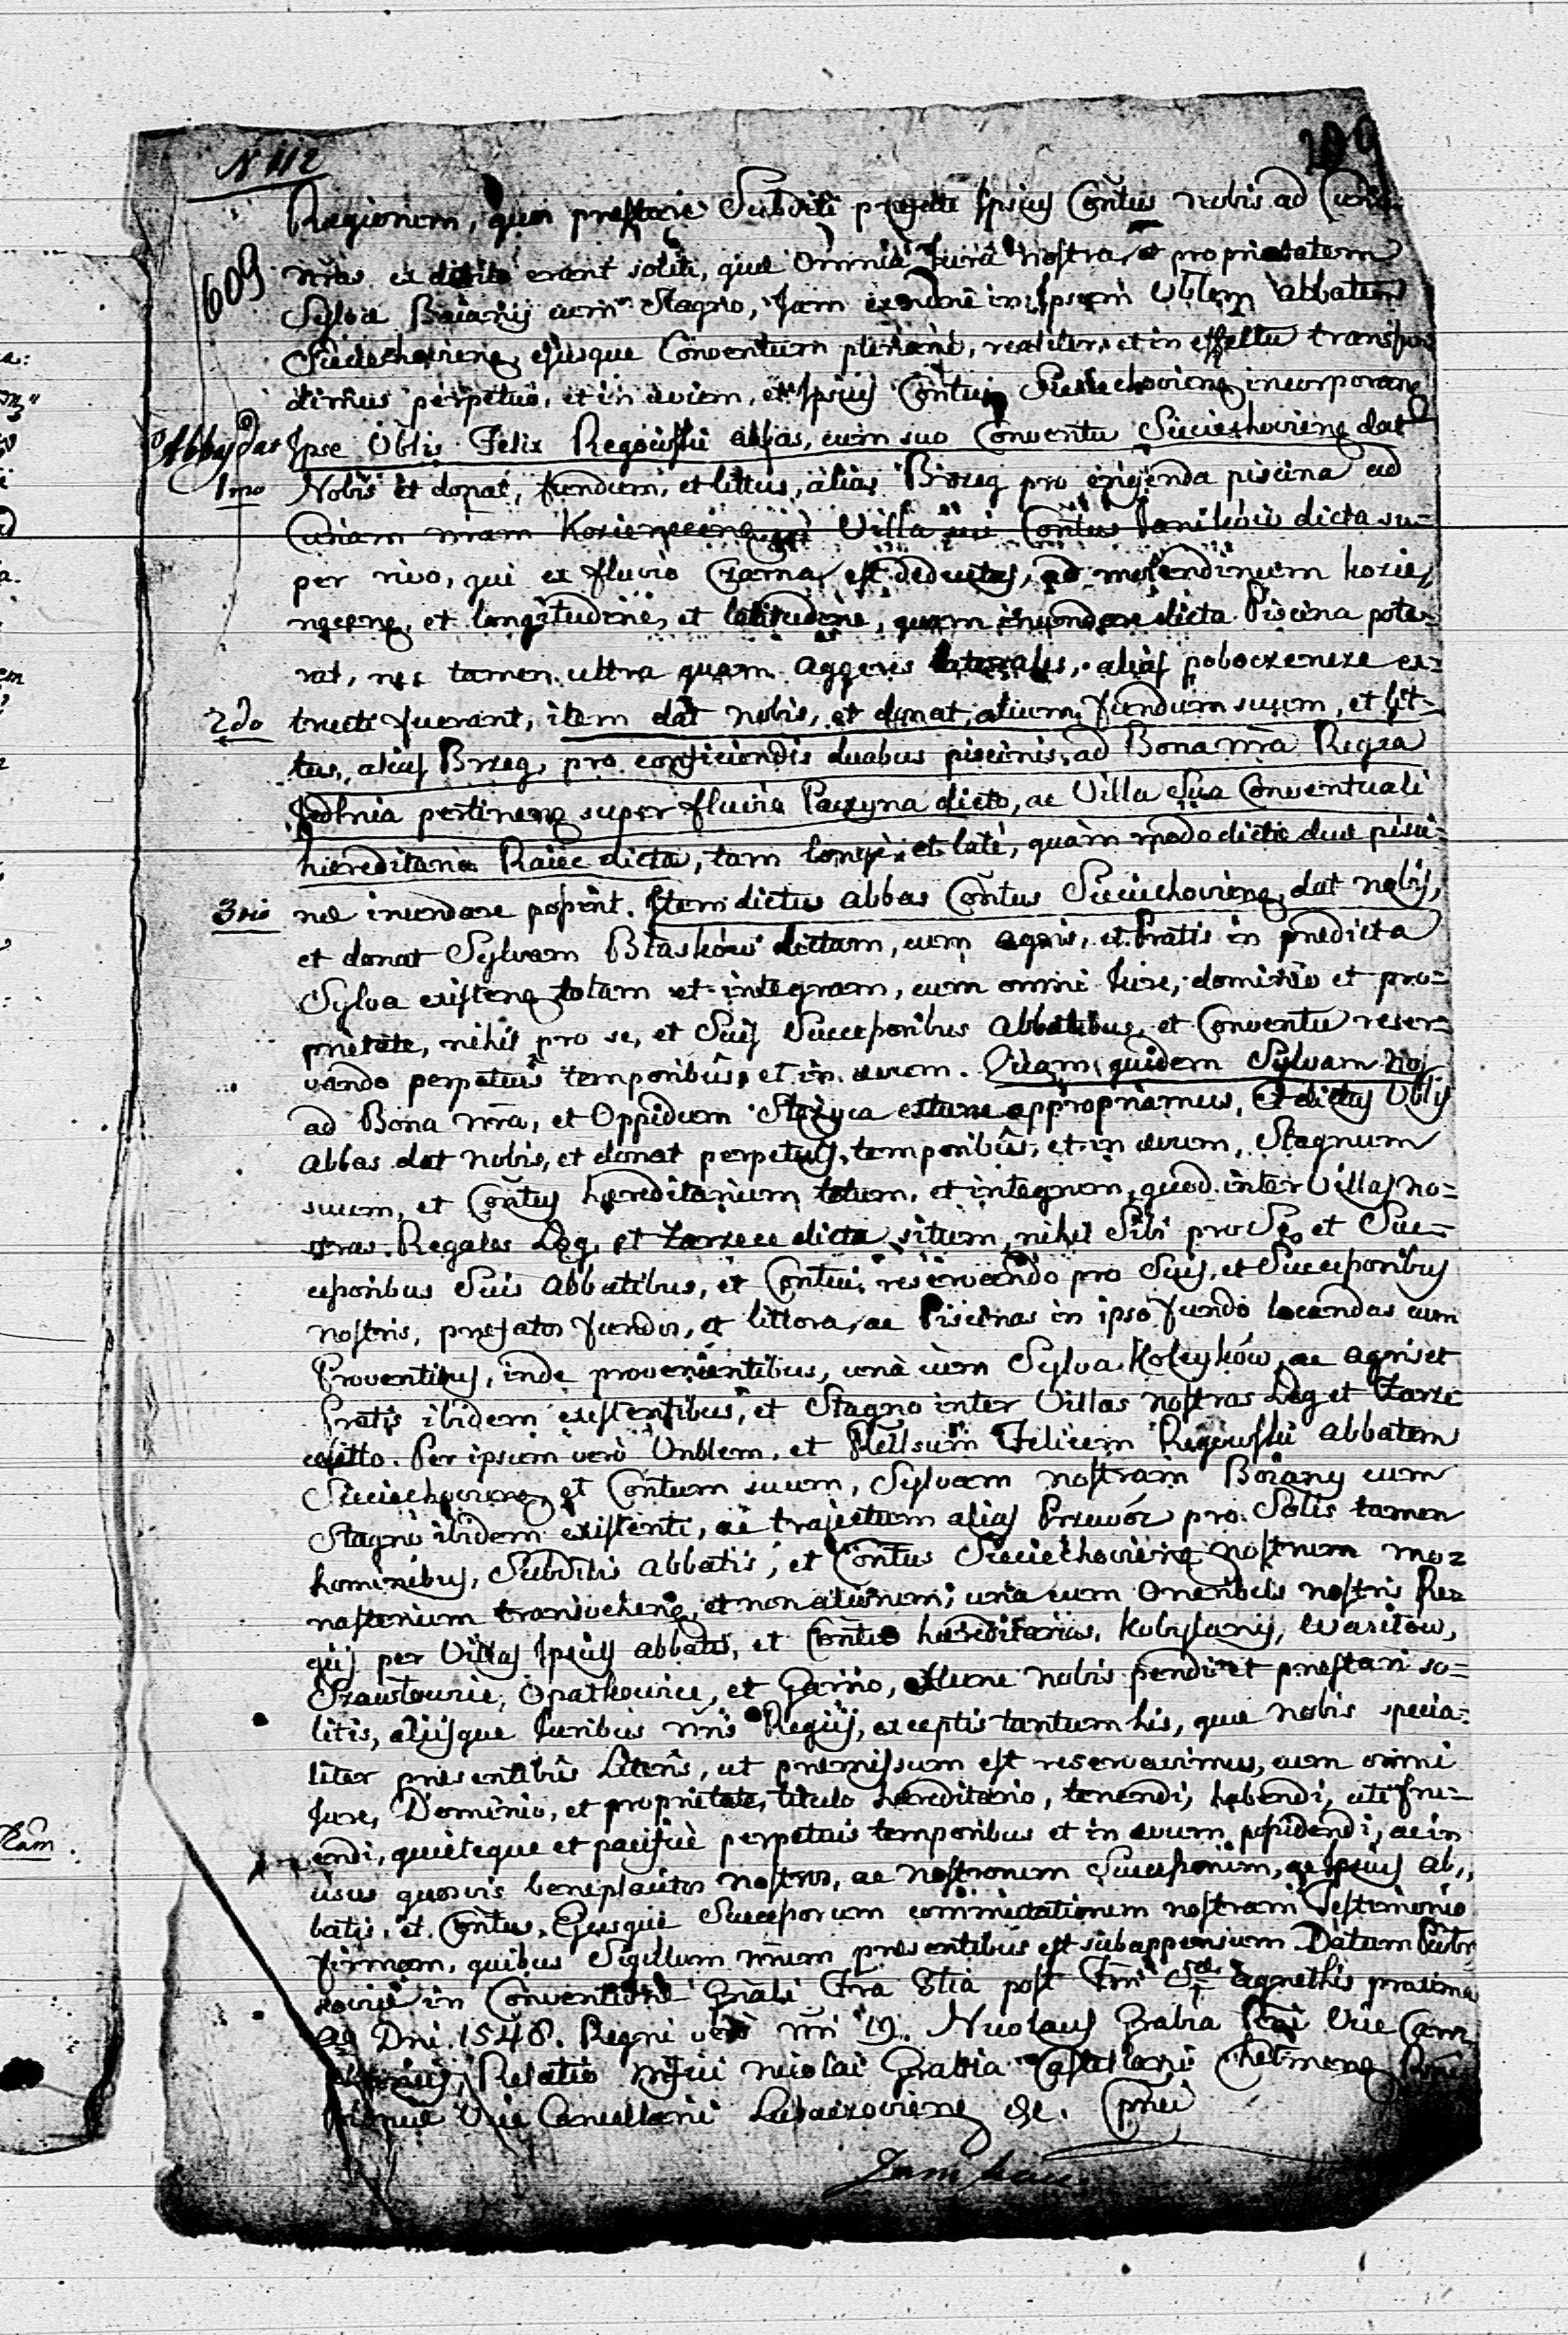 N 112
209
Regionem, quem prestare Subditi prefate Ipsius Contus nobis ad Curia
609
nras ex debito erant soliti, que Omnia Jura nostra, et proprietatem
Sylva Baiany cum Stagno, Jam ex nunc in Ipsum Vblem abbatem
Sieciechoviens, ejusque Conventum plenarie, realiter et in effectu transfun
dimus perpetuo, et in evum, et Ipsius Contui Sieciechoviens incorporam
Abbas dat Ipse Vblis Felix Regowski abbas, cum suo Conventu Sieciechoviens dat
1mo Nobis et donat, fundum, et littus, alias Brzeg pro erigenda piscina ad
Curiam nram Kozienecens Villa sui Contus Janikow dicta su=
per rivo, qui ex fluvio Czarna est deductus, ad molendinum Kozie,
ncens, et longitudine, et latitudine, quam inundare dicta Piscina pote=
rat, nec tamen ultra quam aggeres laterales, alias pobocznexe ex=
2do tructi fuerant, item dat nobis, et donat alium fundum suum, et lit=
tus, alias Brzeg, pro conficiendis duabus piscinis, ad Bona nra Regia
Jedlnia pertinens super fluvio Paczyna dicto, ac Villa sua Conventuali
hereditaria Raiec dicta, tam longe et late, quam modo dicte due pisci=
3tio ne inundare possint. Item dictus abbas Contus Sieciechoviens, dat nobis,
et donat Sylvam Blaskow dictam, cum agris, et Pratis in predicta
Sylva existens totam et integram, cum omni Jure, dominio et pro=
prietate, nihil pro se, et Suis Successoribus Abbatibus, et Conventu reser=
vando perpetuis temporibus, et in evum. Quam quidem Sylvam Nos
ad Bona nra, et Oppidum Stezyca extunc appropriamus, Et dictus Vblis
Abbas dat nobis, et donat perpetuis temporibus, et in evum, Stagnum
suum, et Contus hereditarium totum, et integrum, quod inter Villas no=
stras Regales Leg, et Zarzece dicta situm, nihil Sibi pro Se, et Suc=
cessoribus Suis Abbatibus, et Contui, reservando pro Suis, et Successoribus
nostris, prefatos fundos, et littora, ac Piscinas in ipso fundo locandas cum
Proventibus, inde provenientibus, una cum Sylva Koleykow, ac agris et
Pratis ibidem existentibus, et Stagno inter Villas nostras Leg et Zarze
Per ipsum vero Vnblem, et Felicem Regowski abbatem
Sieciechoviens, et Contum suum, Sylvam nostram Boiany cum
Stagno ibidem existenti, ac trajectum alias Przewoz pro Solis tamen
hominibus, Subditis abbatis, et Contus Sieciechoviens nostrum mo=
nasterium transvehens, et non alienum, una cum Oneribus nostris Re=
gijs per Villas Ipsius abbatis, et Contus hereditarias, Kobylany, Wasilow,
Opatkowice, et Garno, nobis pendi et prestari so=
litis, alijsque Juribus nris Regijs, exceptis tantum his, que nobis specia=
liter presentibus Literis, ut premissum est reservavimus, cum omni
Jure, Dominio, et proprietate, titulo hereditario, tenendi, habendi, utifru=
endi, quieteque et pacifice perpetuis temporibus et in evum possidendi, ac in
usus quosvis beneplacitos nostros, ac nostrorum Successorum, ac Ipsius ab,,
batis, et Contus, Ejusque Successorum commutationem nostram Testimonio
firmam, quibus Sigillum nrum presentibus est subappensum Datum Petri
covie in Conventione Grali Fra 8tia post Fm Ste Agnethis proxima
Dni 1548. Regni vero nri 19. Nicolaus Grabia Rni Vice Can
Relatio Nicolai Grabia Castellani Chelmens
Vice Cancellarii